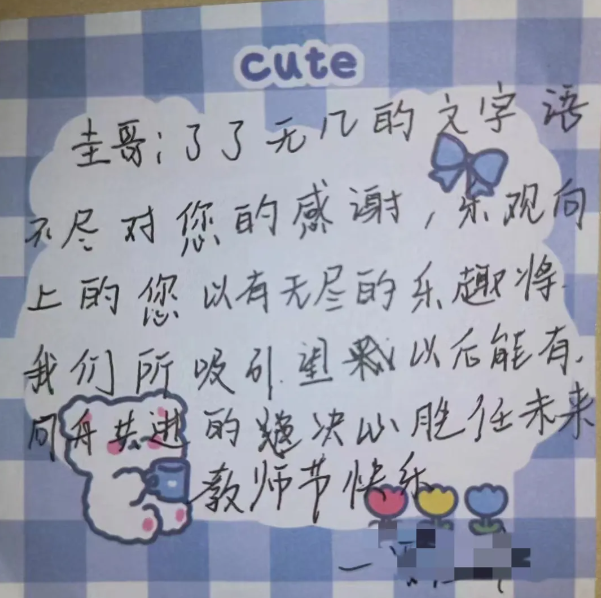 cute
圭哥：了了无几的文字语
不尽对您的感谢，乐观向
上的您以有无尽的乐趣将
我们所吸引.望我以后能有.
同舟共进的决心胜任未来
教师节快乐